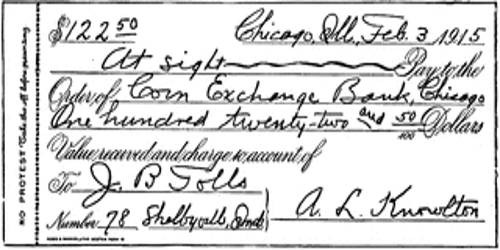 $122 50 Chicago, Ill., Feb. 3, 1915
At sight Pay to the
Order of Corn Exchange Bank, Chicago
One hundred twenty-two and 50/100 Dollars
Value received and charge to account of
To J. B Tolls
Number 78 Shelbyville, Ind. A. L. Knowlton
NO PROTEST Take this off before presenting